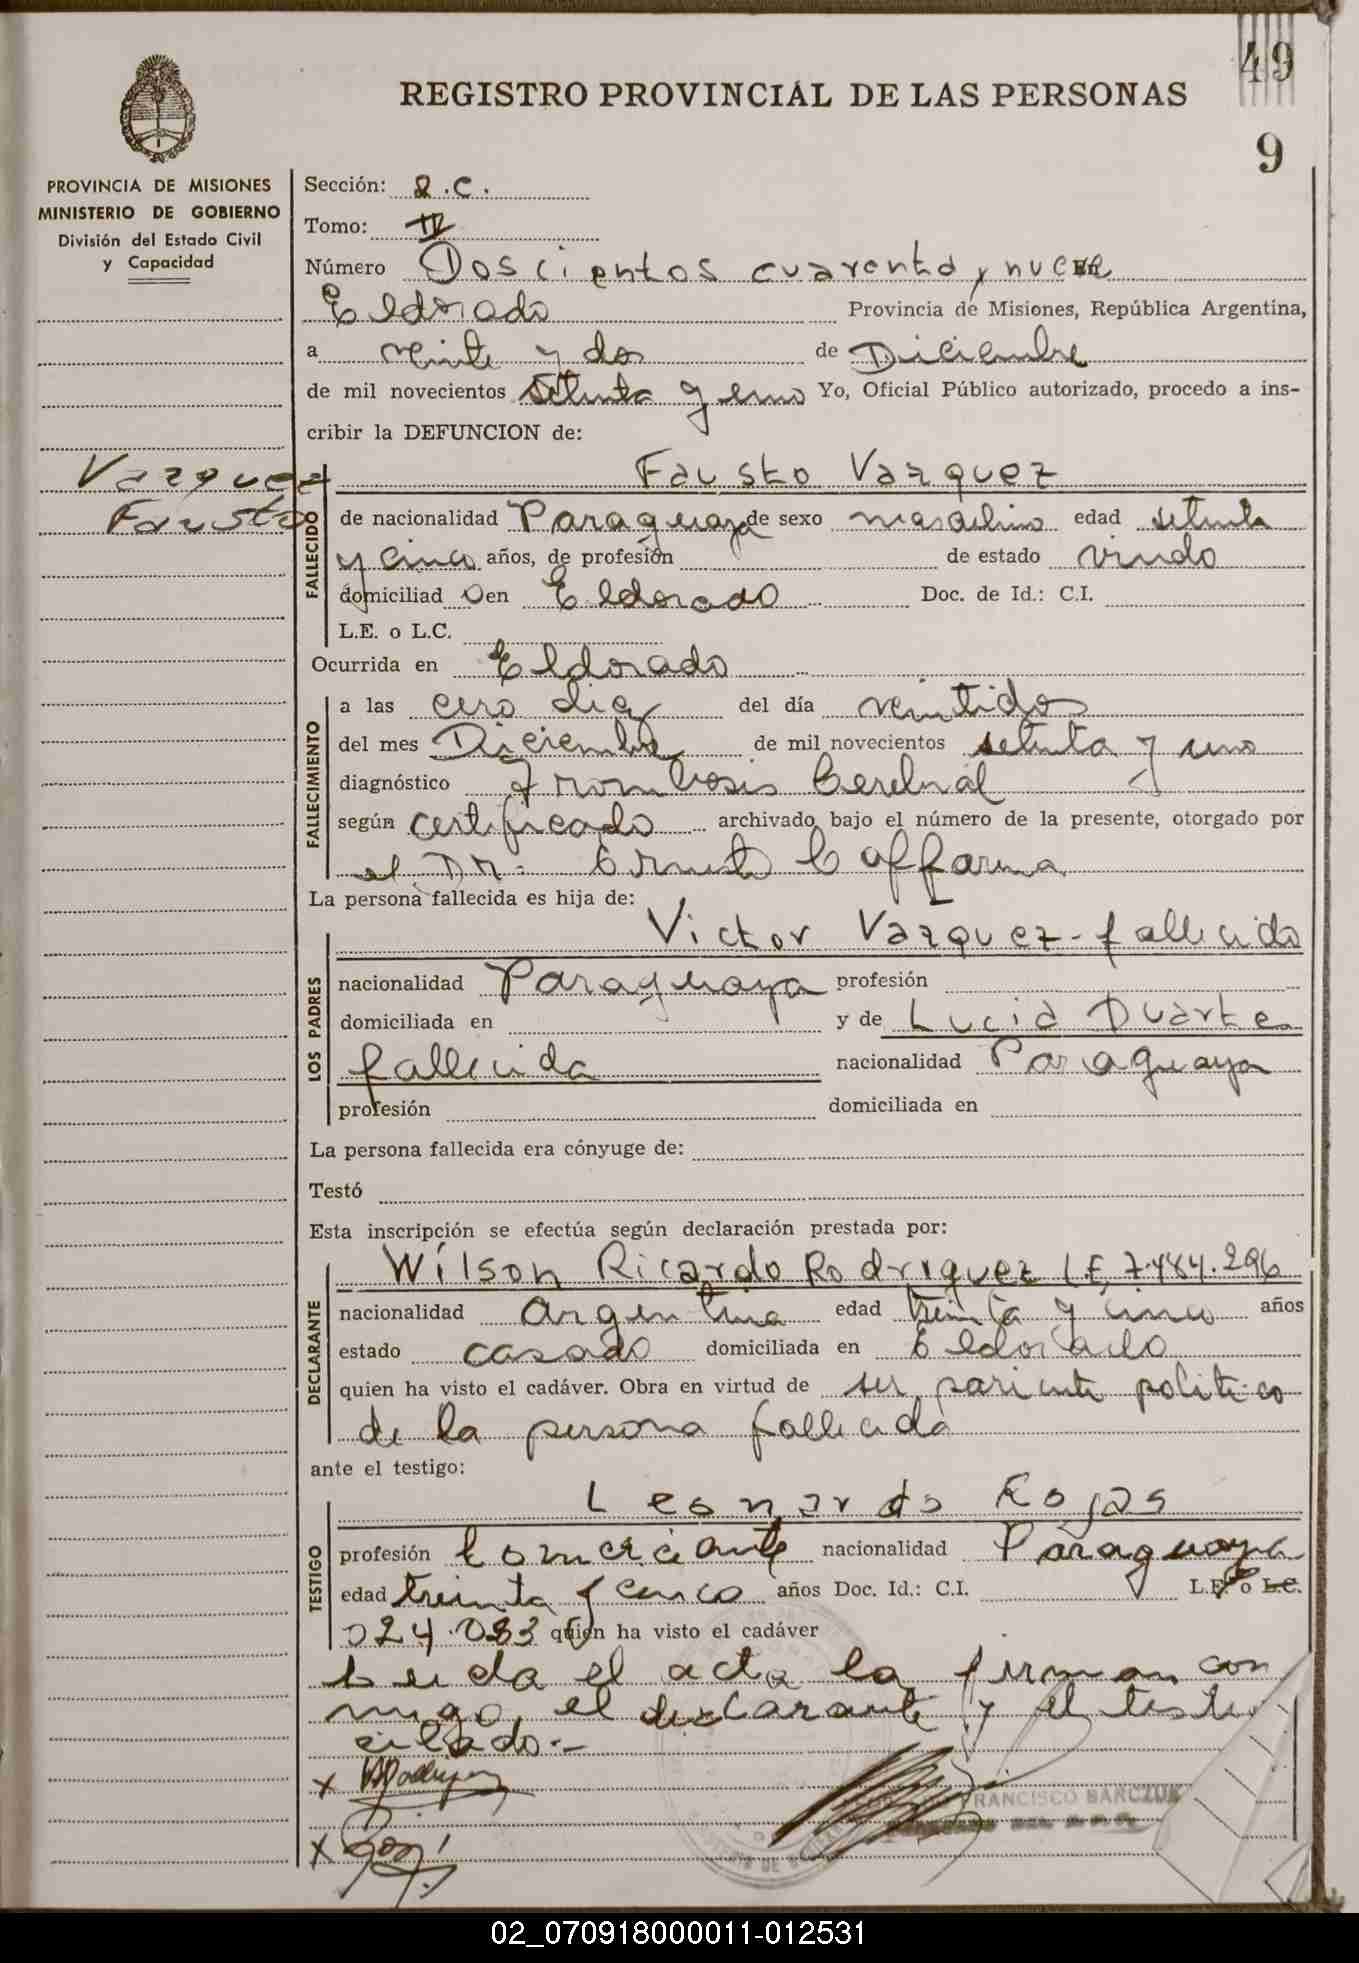 49
REGISTRO PROVINCIAL DE LAS PERSONAS
9
PROVINCIA DE MISIONES
MINISTERIO DE GOBIERNO
División del Estado Civil
y Capacidad
Sección: 2.C.
Tomo: II
Número Doscientos cuarenta y nueve
Eldorado Provincia de Misiones, República Argentina,
a veinte y dos de Diciembre
de mil novecientos setenta y uno Yo, Oficial Público autorizado, procedo a ins-
cribir la DEFUNCION de:
Vazquez
Fausto
FALLECIDO
Fausto Vazquez
de nacionalidad Paraguaya de sexo masculino edad setenta
y cinco años, de profesión de estado viudo
domiciliad o en Eldorado Doc. de Id.: C.I.
L.E. o L.C.
Ocurrida en Eldorado
FALLECIMIENTO
a las cero diez del día veintidos
del mes Diciembre de mil novecientos setenta y uno
diagnóstico Trombosis Cerebral
según certificado archivado bajo el número de la presente, otorgado por
el Dr. Ernesto Caffarena
La persona fallecida es hija de:
LOS PADRES
Victor Vazquez - fallecido
nacionalidad Paraguaya profesión
domiciliada en y de Lucia Duarte
fallecida nacionalidad Paraguaya
profesión domiciliada en
La persona fallecida era cónyuge de:
Testó
Esta inscripción se efectúa según declaración prestada por:
DECLARANTE
Wilson Ricardo Rodriguez LE 7.484.296
nacionalidad argentina edad treinta y cinco años
estado casado domiciliada en Eldorado
quien ha visto el cadáver. Obra en virtud de ser pariente politico
de la persona fallecida
ante el testigo:
TESTIGO
Leonardo Rojas
profesión Comerciante nacionalidad Paraguaya
edad treinta y cinco años Doc. Id.: C.I. L.E. o L.C.
024.083 quien ha visto el cadáver
Leida el acta la firman con
migo, el declarante y el testigo
citado.-
x WRodriguez
FRANCISCO BARCZUK
x
02_070918000011-012531